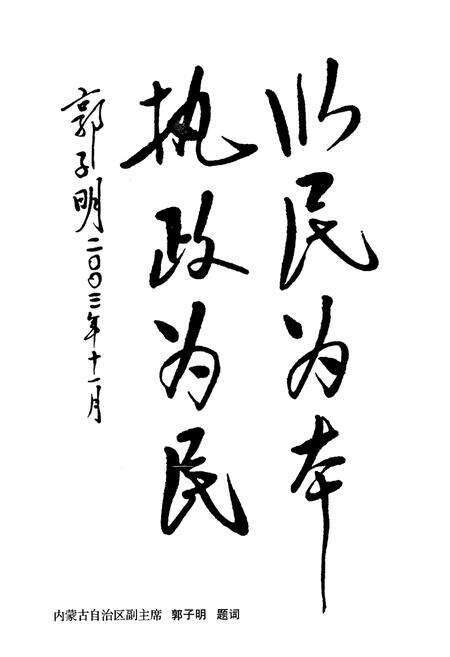 以民为本
执政为民
郭子明 二〇〇三年十一月
内蒙古自治区副主席 郭子明 题词